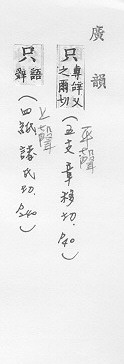 廣韻
只 專辤又之爾切 (五支 章移切. P40) 平聲
只 語辤 (四紙 諸氏切. P240) 上聲